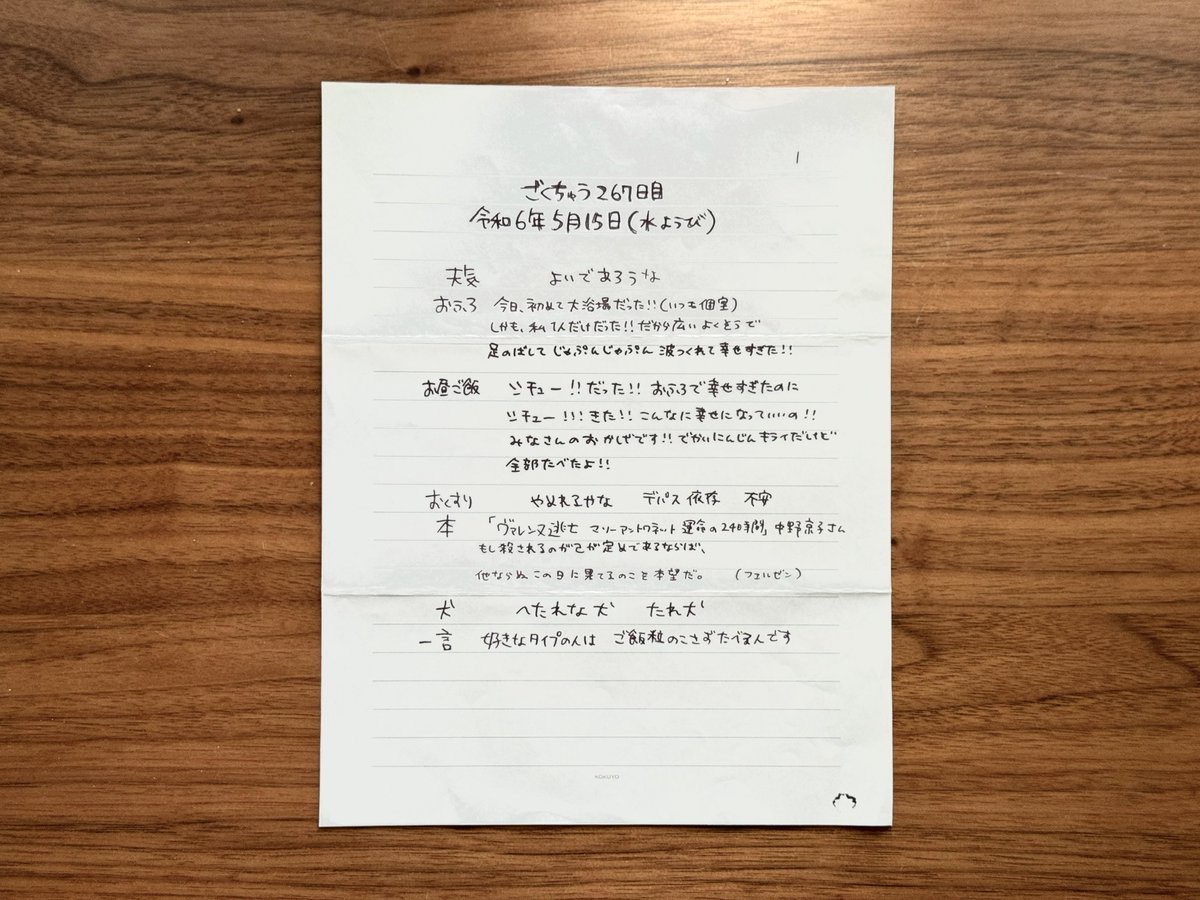 1
ざくちゅう267日目
令和6年5月15日(水ようび)
天気 よいであろうな
おふろ 今日、初めて大浴場だった!!(いつも個室)
しかも、私1人だけだった!!だから広いよくそうで
足のばしてじゃぷんじゃぷん波つくれて幸せすぎた!!
お昼ご飯 シチュー!!だった!!おふろで幸せすぎたのに
シチュー!!!きた!!こんなに幸せになっていいの!!
みなさんのおかげです!!でかいにんじんキライだけど
全部たべたよ!!
おくすり やめれるかな デパス依存 不安
本 「ヴァレンヌ逃亡 マリーアントワネット 運命の24時間」中野京子さん
もし殺されるのが己が定めであるならば、
他ならぬこの日に果てるのこと本望だ。 (フェルゼン)
犬 へたれな犬 たれ犬
一言 好きなタイプの人は ご飯粒のこさずたべる人です
KOKUYO